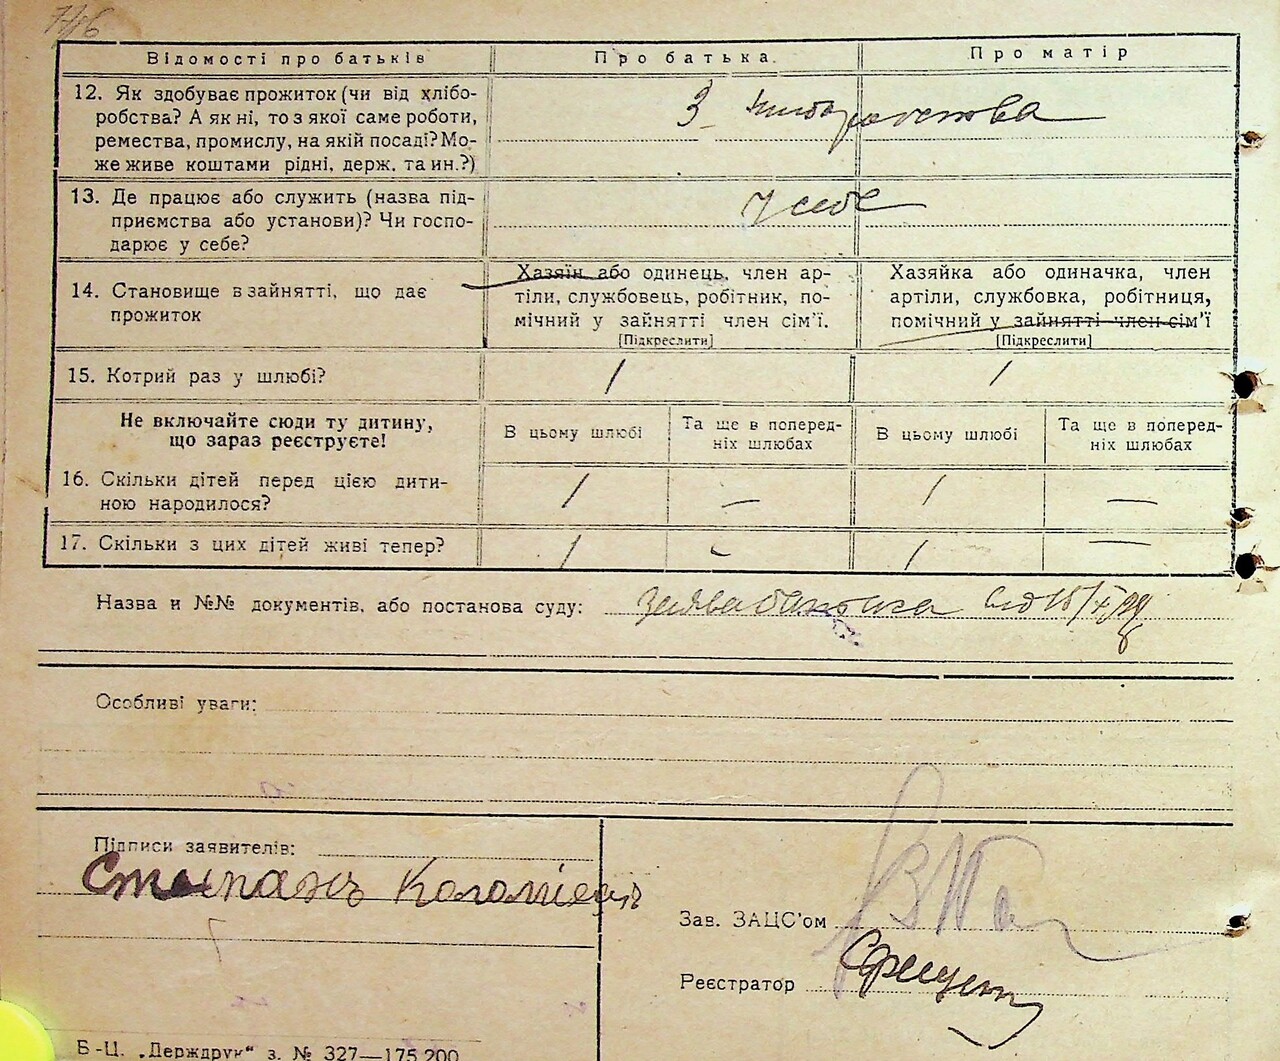 776
Відомості про батьків
Про батька.
Про матір
12. Як здобуває прожиток (чи від хлібо-
робства? А як ні, то з якої саме роботи,
ремества, промислу, на якій посаді? Мо-
же живе коштами рідні, держ. та ин.?)
З хліборобства
13. Де працює або служить (назва під-
приємства або установи)? Чи госпо-
дарює у себе?
У себе
14. Становище в зайнятті, що дає
прожиток
Хазяїн або одинець, член ар-
тіли, службовець, робітник, по-
мічний у зайнятті член сім'ї.
[Підкреслити]
Хазяйка або одиначка, член
артіли, службовка, робітниця,
помічний у зайнятті член сім'ї
[Підкреслити]
15. Котрий раз у шлюбі?
1
1
Не включайте сюди ту дитину,
що зараз реєструєте!
В цьому шлюбі
Та ще в поперед-
ніх шлюбах
В цьому шлюбі
Та ще в поперед-
ніх шлюбах
16. Скільки дітей перед цією дити-
ною народилося?
1
—
1
—
17. Скільки з цих дітей живі тепер?
1
-
1
—
Назва и №№ документів, або постанова суду: Заява батька
Особливі уваги:
Підписи заявителів:
Степанъ Коломіець
Зав. ЗАЦС'ом
Реєстратор
Б-Ц. „Держдрук“ з. № 327—175.200